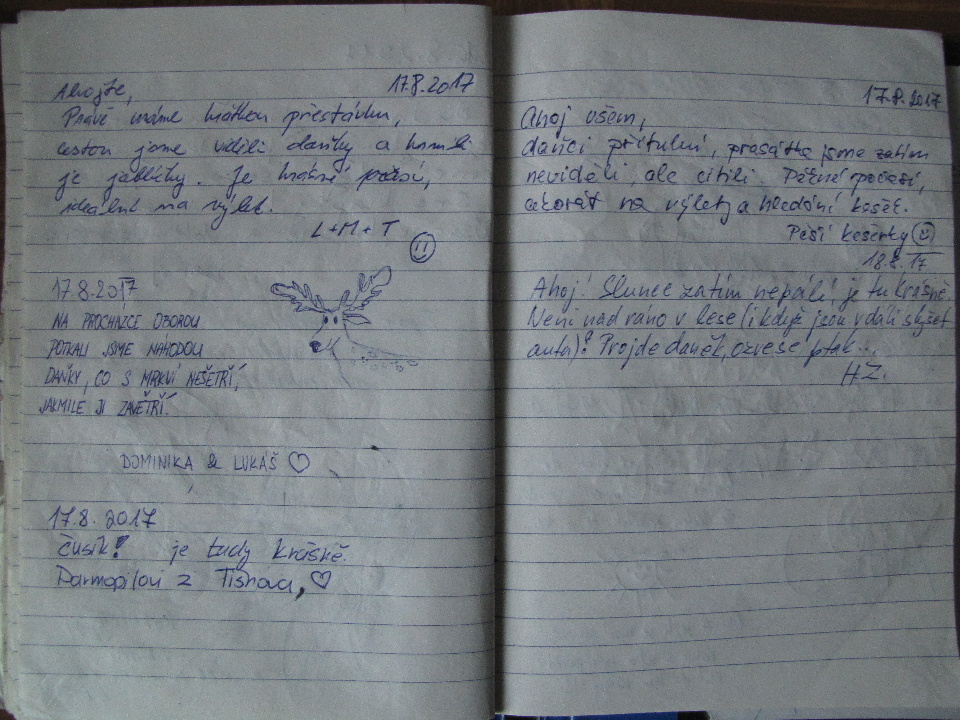 Ahojte,
17.8.2017
Právě máme krátkou přestávku,
cestou jsme viděli daňky a krmili
je jablíčky. Je krásné počasí,
ideální na výlet.
L+M+T
17.8.2017
NA PROCHÁZCE OBOROU
POTKALI JSME NÁHODOU
DAŇKY, CO S MRKVÍ NEŠETŘÍ,
JAKMILE JI ZAVĚTŘÍ.
DOMINIKA & LUKÁŠ ♡
17.8.2017
Čusik! je tady krásně.
z Tišnova, ♡
17.8.2017
Ahoj všem,
daňci přítulní, prasátka jsme zatím
neviděli, ale cítili. Pěkné počasí,
akorát na výlet a hledání košek.
Pěší kešerky
18.8.17
Ahoj! Slunce zatím nepálí, je tu krásně.
Není nad ráno v lese (i když jsou v dáli slyšet
auta)! Projde daněk, ozve se pták...
H.Ž.